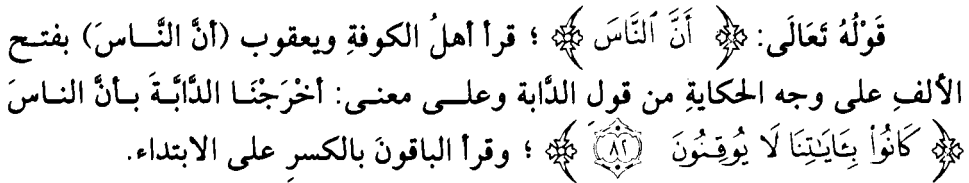 قَوْلُهُ تَعَالَى: ﴿ أَنَّ ٱلنَّاسَ ﴾ ؛ قرأ أهلُ الكوفةِ ويعقوب (أنَّ النَّـاسَ) بفتـح
الألفِ على وجه الحكايةِ من قول الدَّابة وعلـى معنـى: أخْرَجْنَـا الدَّابَّـةَ بـأنَّ الناسَ
﴿ كَانُوا۟ بِـَٔايَـٰتِنَا لَا يُوقِنُونَ ﴿٨٢﴾ ﴾ ؛ وقرأ الباقونَ بالكسرِ على الابتداء.